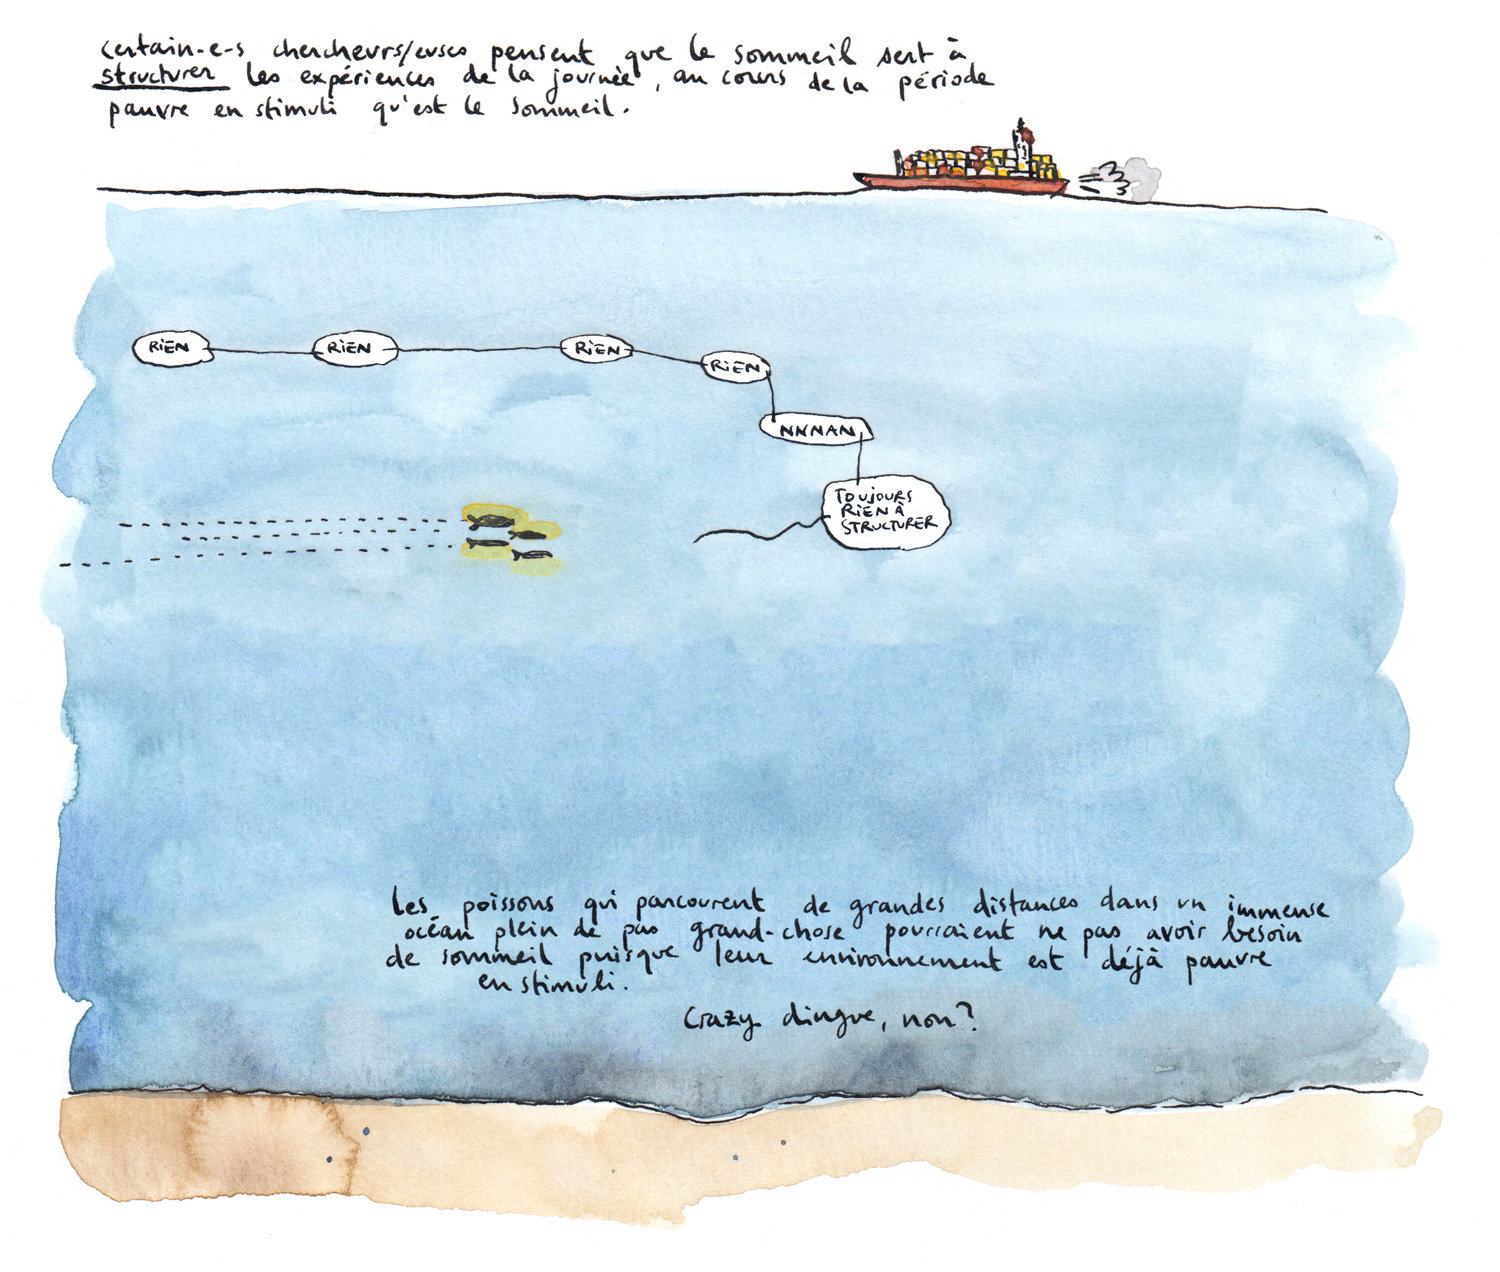 certain-e-s chercheurs/euses pensent que le sommeil sert à
structurer les expériences de la journée, au cours de la période
pauvre en stimuli qu'est le sommeil.
RIEN
RIEN
RIEN
RIEN
NNNAN
TOUJOURS
RIEN À
STRUCTURER
Les poissons qui parcourent de grandes distances dans un immense
océan plein de pas grand-chose pourraient ne pas avoir besoin
de sommeil puisque leur environnement est déjà pauvre
en stimuli.
Crazy dingue, non?